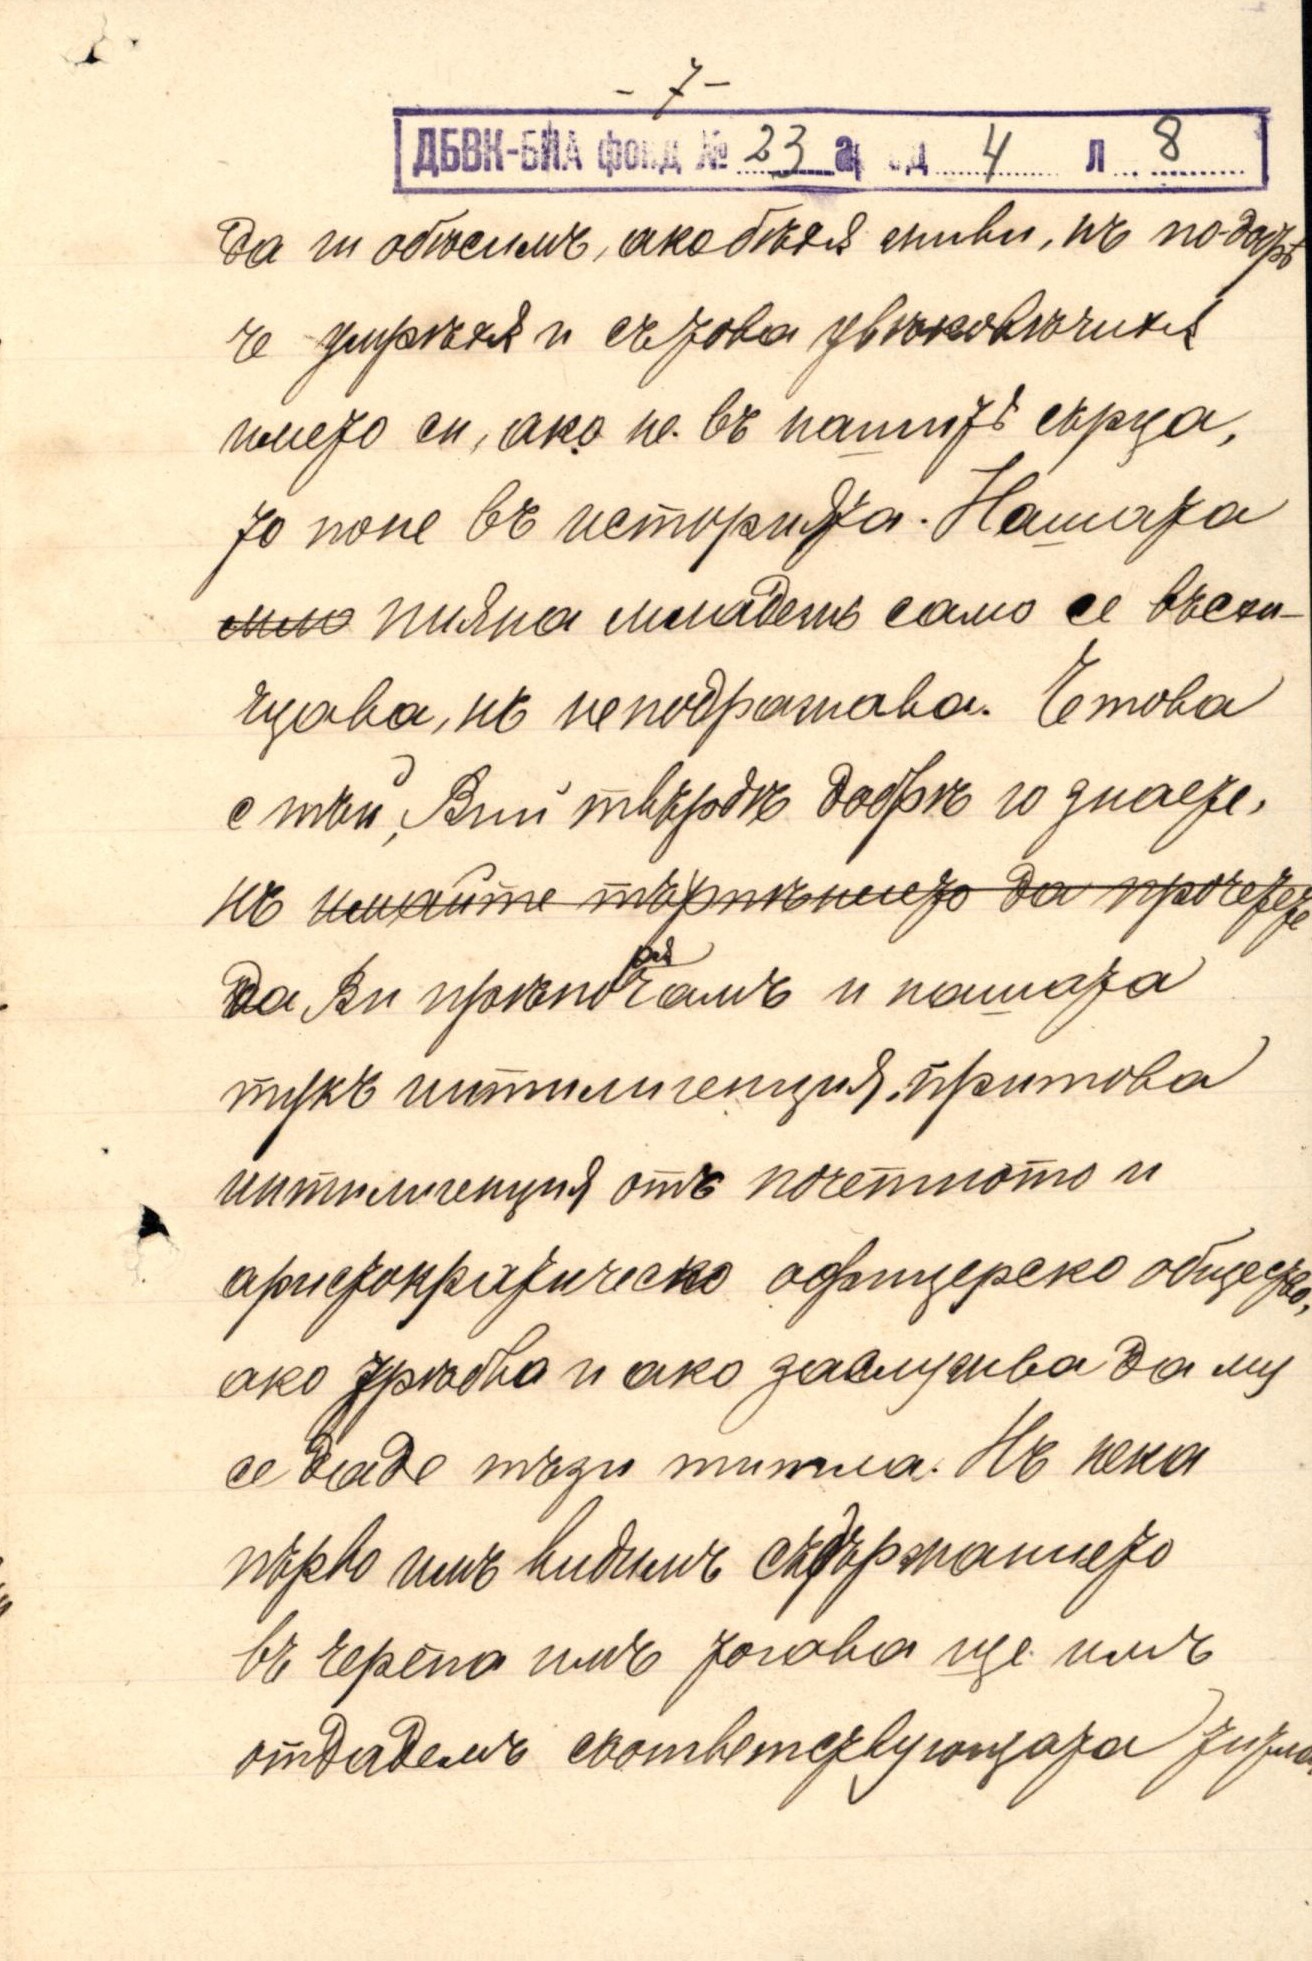 - 7 -
ДБВК-БИА фонд № 23 а ед 4 л 8
да ги обѣсимъ, ако бѣхѫ живи, нъ по-добрѣ
че умрѣхѫ и съ това увѣковѣчихѫ
името си, ако не въ нашитѣ сърца,
то поне въ историята. Нашата
мило пияна младежь само се въсхи-
щава, нъ неподражава. Че това
е тъй, Вий твърдѣ добрѣ го знаете,
нъ имайте търпѣнието да прочетете
да Ви прѣпорѫчамъ и нашата
тукъ интилигенция. При това
интилигенция отъ почетното и
аристократическо офицерско общество,
ако трѣбва и ако заслужва да му
се даде тъзи титла. Нъ нека
първо имъ видимъ съдържанието
въ черепа имъ тогава ще имъ
отдадемъ съответствующата титла